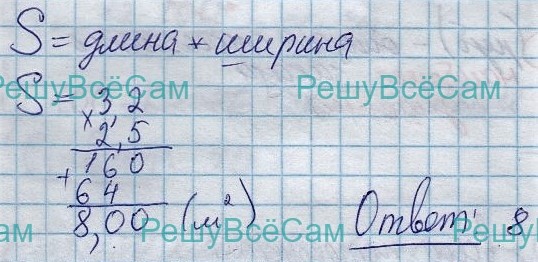 S = длина * ширина
РешуВсёСам РешуВсёСам
S = 3,2
× 2,5
160
+ 64
8,00 (м²) Ответ: 8
ам РешуВсёСам РешуВсёСам